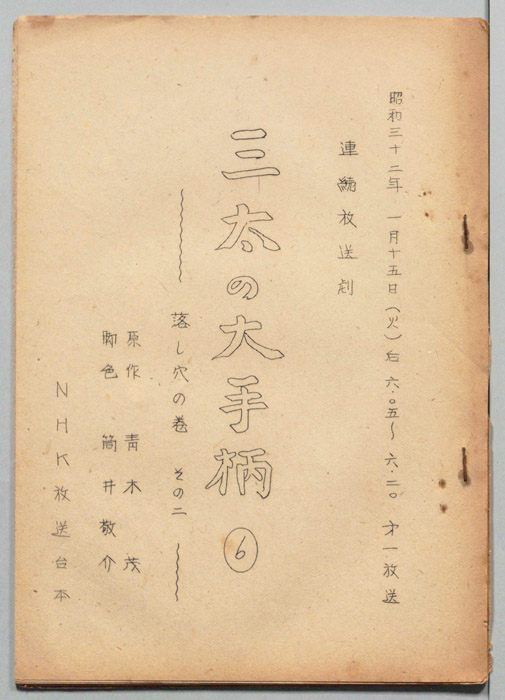 昭和三十二年 一月十五日(火)后 六.○五〜六.二○ 才一放送
連続放送劇
三太の大手柄 ⑥
落し穴の巻 その二
原作 青木 茂
脚色 筒井敬介
NHK放送台本